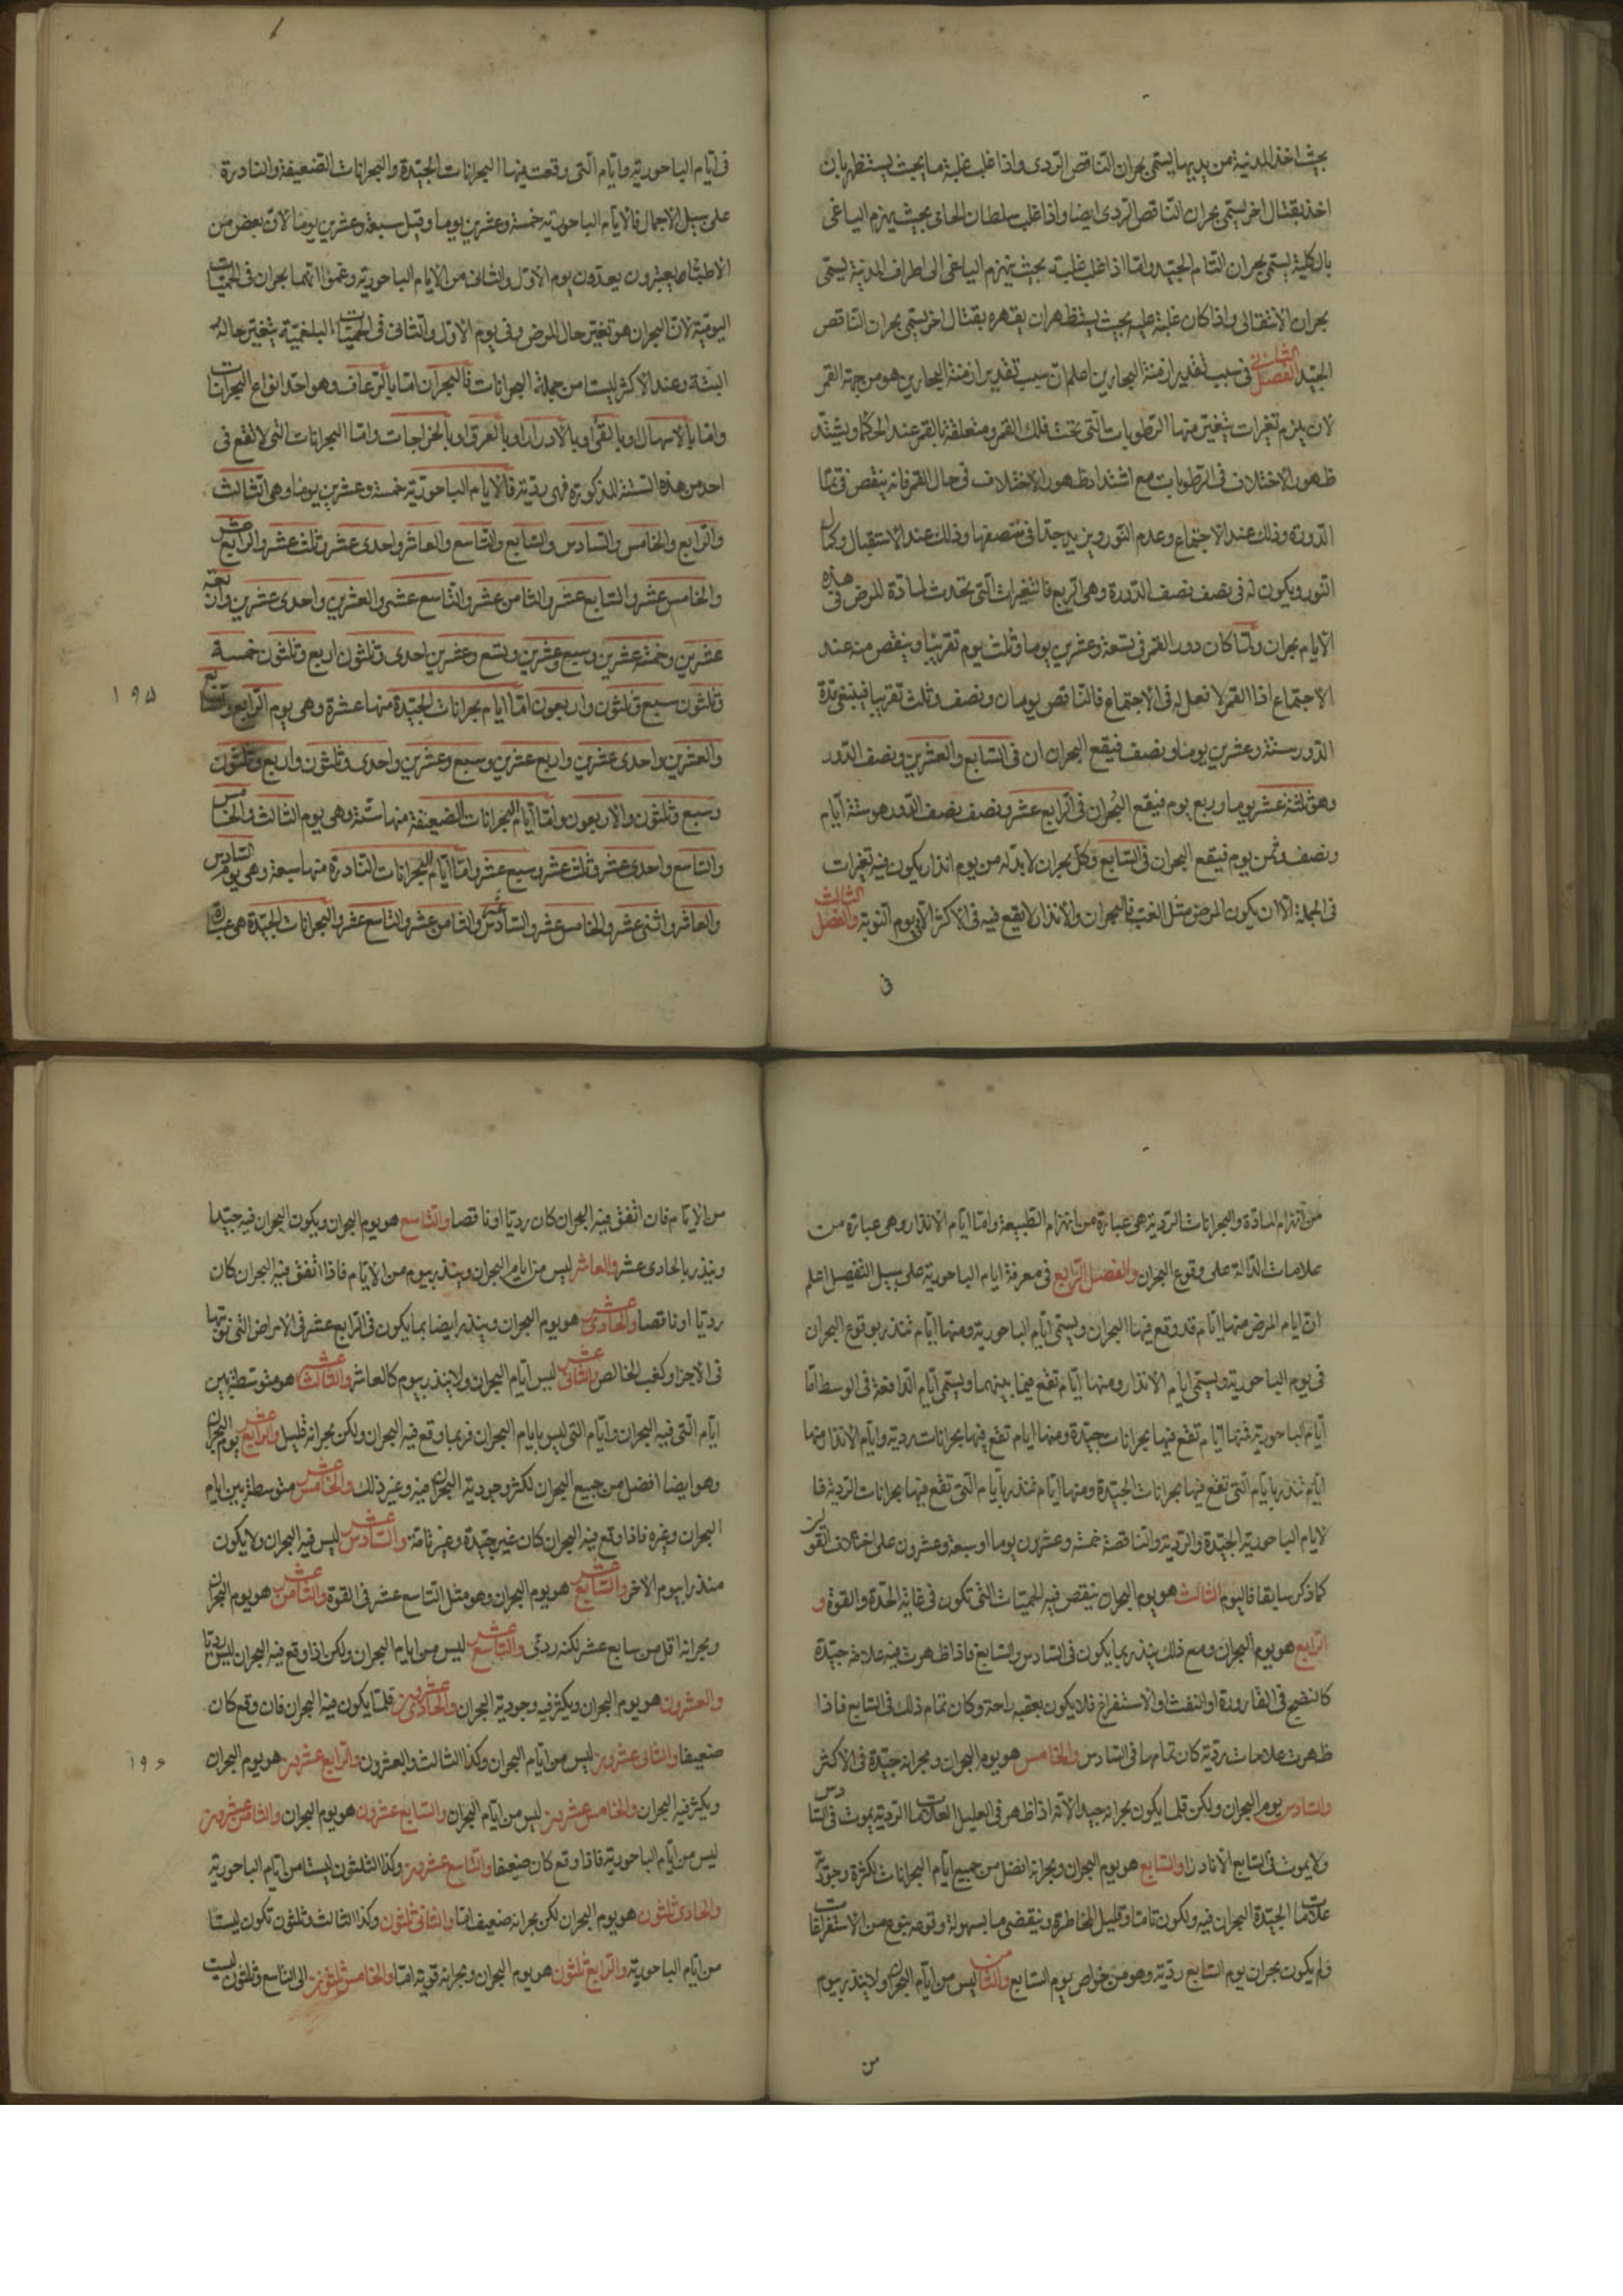 بحيث اخذ المدنية من يديها يسمى بحران الناقص الردى واذا غلب غلبة ما بحيث يستظهر بان
اخذ بقتال اخر يسمى بحران الناقص الردى ايضا واذا غلب سلطان الحامى بحيث ينهزم الياغى
بالكلية يسمى بحران التام الجيد واما اذا غلب غلبة بحيث ينهزم الياغى الى اطراف المدنية يسمى
بحران الانتقالى واذا كان غلبة عليه بحيث يستظهر ان يقهره بقتال اخر يسمى بحران الناقص
الجيد الفصل الثانى فى سبب تقدير ازمنة البحارين اعلم ان سبب تقدير ازمنة البحارين هو من جهة القمر
لان يلزم تغيرات يتغير منها الرطوبات التى تحت فلك القمر ومتعلقة بالقمر عند الحكما ويشتد
ظهور الاختلاف فى الرطوبات مع اشتداد ظهور الاختلاف فى حال القمر فانه ينقص فى
الدورة وذلك عند الاجتماع وعدم النور ويزيد جدا فى منتصفها وذلك عند الاستقبال وكمال
النور ويكون له فى نصف نصف الدورة وهى التربيع فالتغيرات التى تحدث لمادة المرض فى هذه
الايام بحران ولما كان دور القمر فى تسعة وعشرين يوما وثلث يوم تقريبا وينقص منه عند
الاجتماع اذا القمر لا فعل له فى الاجتماع فالناقص يومان ونصف وثلث تقريبا فيبقى مدة
الدور ستة وعشرين يوما ونصف فيقع البحران فى السابع والعشرين ونصف الدور
وهو ثلثة عشر يوما وربع يوم فيقع البحران فى الرابع عشر ونصف نصف الدور هو ستة ايام
ونصف وثمن يوم فيقع البحران فى السابع وكل بحران لا بد له من يوم انذار يكون فيه تغيرات
فى الجملة الا ان يكون المرض مثل الغب فالبحران والانذار لا يقع فيه فى الاكثر الا فى يوم النوبة والفصل الثالث
فى
فى ايام الباحورية وايام التى وقعت فيها البحرانات الجيدة والبحرانات الضعيفة والنادرة
على سبيل الاجمال فالايام الباحورية خمسة وعشرين يوما وقيل سبعة وعشرين يوما لان بعض من
الاطباء يعتبرون يعدون يوم الاول والثانى من الايام الباحورية وزعموا انهما بحران فى الحميات
اليومية لان البحران هو تغير حال المرض وفى يوم الاول والثانى فى الحميات البلغمية يتغير حاله
البتة وعند الاكثر ليستا من جملة البحرانات فالبحران اما بالرعاف وهو احد انواع البحرانات
واما بالاسهال او بالقى او بالادرار او بالعرق او بالخراجات واما البحرانات التى لا تقع فى
احد من هذه الستة المذكورة فهى ردية فالايام الباحورية خمسة وعشرين يوما وهى الثالث
والرابع والخامس والسادس والسابع والتاسع والعاشر واحدى عشر وثلث عشر والرابع عشر
والخامس عشر والسابع عشر والثامن عشر والتاسع عشر والعشرين واحدى عشرين واربعة
عشرين وخمسة عشرين وسبع وعشرين وتسع وعشرين احدى وثلثون اربع وثلثون خمسة
وثلثون سبع وثلثون واربعون اما ايام بحرانات الجيدة منها عشرة وهى يوم الرابع والسابع
والعشرين واحدى عشرين واربع عشرين وسبع وعشرين واحدى وثلثون واربع وثلثون
وسبع وثلثون والاربعون واما ايام البحرانات الضعيفة منها ستة وهى يوم الثالث والخامس
والتاسع واحدى عشر وثلث عشر وسبع عشر واما ايام البحرانات النادرة منها سبعة وهى يوم السادس
والعاشر واثنى عشر والخامس عشر والسادس عشر والثامن عشر والتاسع عشر والبحرانات الجيدة هى عبارة
١٩٥
من انهزام المادة والبحرانات الردية هى عبارة من انهزام الطبيعة واما ايام الانذار وهى عبارة من
علامات الدالة على وقوع البحران والفصل الرابع فى معرفة ايام الباحورية على سبيل التفصيل اعلم
ان ايام المرض منها ايام قد وقع فيها البحران ويسمى ايام الباحورية ومنها ايام تنذر بوقوع البحران
فى يوم الباحورية ويسمى ايام الانذار ومنها ايام تقع فيما بينهما ويسمى ايام الواقعة فى الوسط اما
ايام الباحورية فمنها ايام تقع فيها بحرانات جيدة ومنها ايام تقع فيها بحرانات ردية وايام الانذار منها
ايام تنذر بايام التى تقع فيها بحرانات الجيدة ومنها ايام تنذر بايام التى تقع فيها بحرانات الردية فا
لايام الباحورية الجيدة والردية والناقصة خمسة وعشرون يوما او سبعة وعشرون على اختلاف القولين
كما ذكر سابقا فاليوم الثالث هو يوم البحران ينقص فيه الحميات التى تكون فى غاية الحدة والقوة و
الرابع هو يوم البحران ومع ذلك ينذر بما يكون فى السادس والسابع فاذا ظهرت فيه علامة جيدة
كالنضج فى القارورة او النفث او الاستفراغ فلا يكون بعقبه راحة وكان تمام ذلك فى السابع فاذا
ظهرت علامات ردية كان تمامها فى السادس والخامس هو يوم البحران وبحرانه جيدة فى الاكثر
والسادس يوم البحران ولكن قلما يكون بحرانه جيد لانه اذا ظهر فى العليل العلامات الردية يموت فى السادس
ولا يموت فى السابع الا نادرا والسابع هو يوم البحران وبحرانه افضل من جميع ايام البحرانات لكثرة وجودية
علامات الجيدة البحران فيه ولكون تاما وقليل المخاطرة وينقضى ما بسهولة وقوعه بنوع من الاستفراغات
ولم يكون بحران يوم السابع ردية وهو من خواص يوم السابع والثامن ليس من ايام البحران ولا ينذر بيوم
من
من الايام فان اتفق فيه البحران كان رديا او ناقصا والتاسع هو يوم البحران ويكون البحران فيه جيدا
وينذر بالحادى عشر والعاشر ليس من ايام البحران وينذر بيوم من الايام فاذا اتفق فيه البحران كان
رديا او ناقصا والحادى عشر هو يوم البحران وينذر ايضا بما يكون فى الرابع عشر فى الامراض التى نوبتها
فى الاجزا وكغب الخالص والثانى عشر ليس ايام البحران ولا ينذر بيوم كالعاشر والثالث عشر هو متوسط بين
ايام التى فيه البحران وايام التى ليس بايام البحران فربما وقع فيه البحران ولكن بحرانه قليل والرابع عشر يوم البحران
وهو ايضا افضل من جميع البحران لكثر وجودية البحران فيه وغير ذلك والخامس عشر متوسطة بين ايام
البحران وغيره فاذا وقع فيه البحران كان غير جيدة وغير تامة والسادس عشر ليس فيه البحران ولا يكون
منذرا بيوم الاخر والسابع عشر هو يوم البحران وهو مثل التاسع عشر فى القوة والثامن عشر هو يوم البحران
وبحرانه اقل من سابع عشر لكنه ردى والتاسع عشر ليس من ايام البحران ولكن اذا وقع فيه البحران ليس رديا
والعشرون هو يوم البحران ويكثر فيه وجودية البحران والحادى عشرون قلما يكون فيه البحران فان وقع كان
ضعيفا والثانى عشرين ليس من ايام البحران وكذا الثالث والعشرون والرابع عشرين هو يوم البحران
ويكثر فيه البحران والخامس عشرين ليس من ايام البحران والسابع عشرون هو يوم البحران والثامن عشرين
ليس من ايام الباحورية فاذا وقع كان ضعيفا والتاسع عشرين وكذا الثلثون ليستا من ايام الباحورية
والحادى ثلثون هو يوم البحران لكن بحرانه ضعيف اما والثانى ثلثون وكذا الثالث وثلثون تكون ليستا
من ايام الباحورية والرابع ثلثون هو يوم البحران وبحرانه قوية اما والخامس ثلثون الى التاسع وثلثون ليست
١٩٦